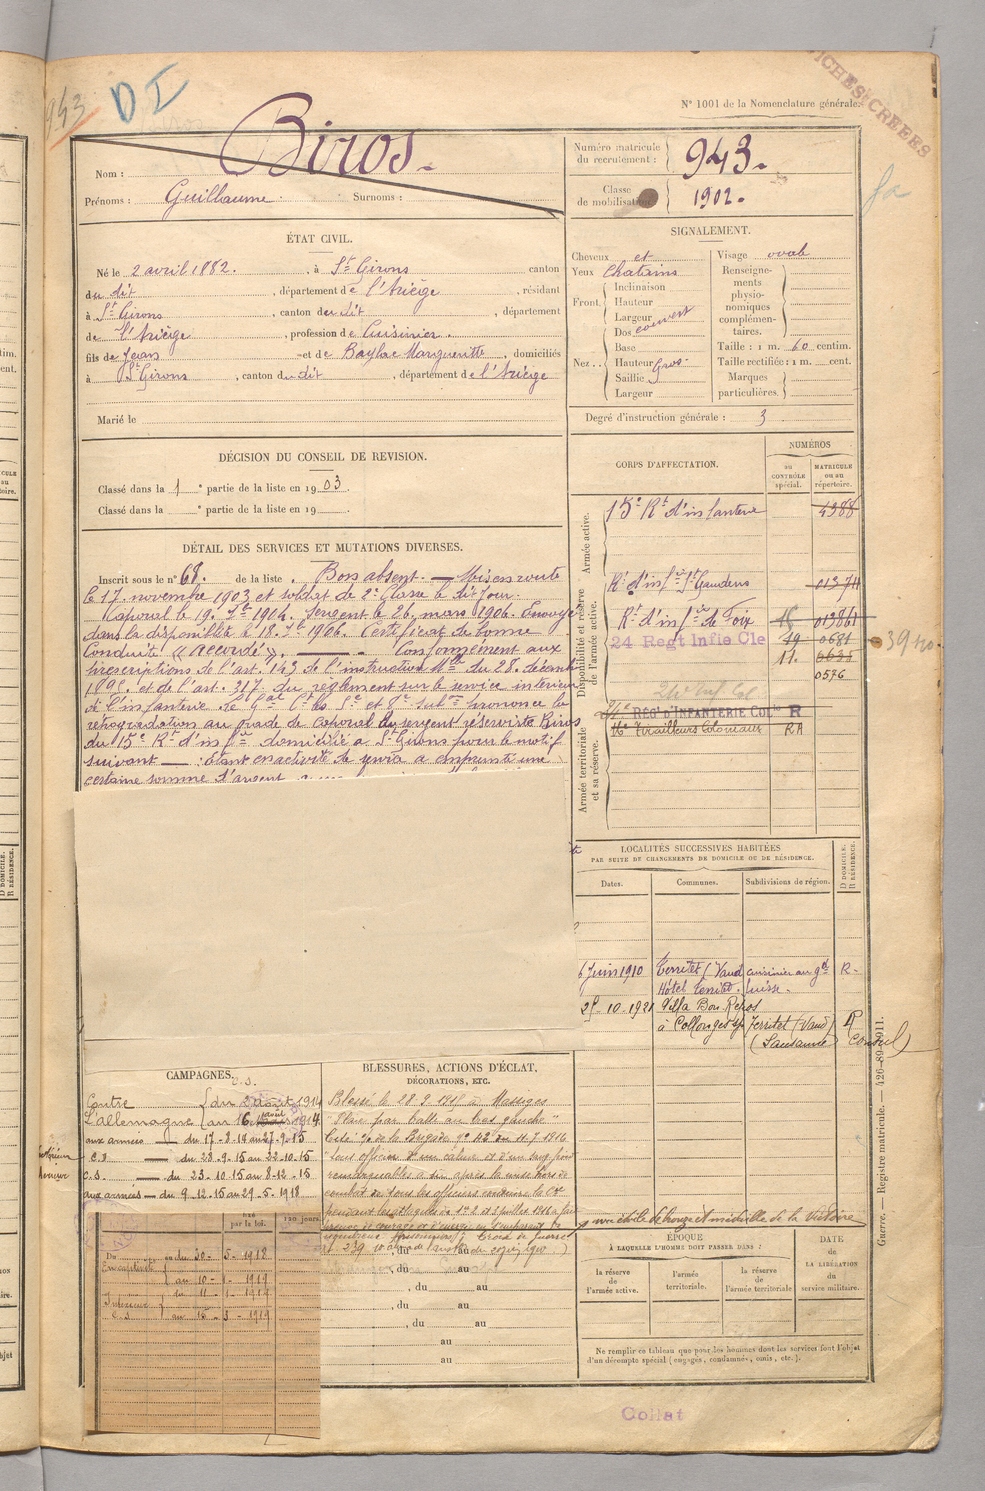 943
D I
FICHES CRÉÉES
N° 1001 de la Nomenclature générale.
Nom : Biros.
Prénoms : Guillaume Surnoms :
Numéro matricule du recrutement : 943.
Classe de mobilisation 1902.
ÉTAT CIVIL.
Né le 2 avril 1882. , à St Girons canton
du dit , département de l'Ariège , résidant
à St Girons , canton du dit , département
de l'Ariège , profession de Cuisinier.
fils de Jean et de Baylac Marguerite , domiciliés
à St Girons , canton du dit , département de l'Ariège
Marié le
SIGNALEMENT.
Cheveux et
Yeux Chatains
Front. Inclinaison
Hauteur
Largeur
Dos couvert
Nez.. Base
Hauteur Gros
Saillie
Largeur
Visage ovale
Renseignements physionomiques complémentaires.
Taille : 1 m. 60 centim.
Taille rectifiée : 1 m. cent.
Marques particulières.
Degré d'instruction générale : 3
DÉCISION DU CONSEIL DE REVISION.
Classé dans la 1 e partie de la liste en 1903.
Classé dans la e partie de la liste en 19
CORPS D'AFFECTATION.
NUMÉROS
au CONTRÔLE spécial.
MATRICULE ou au répertoire.
Armée active.
15e Rt d'infanterie 4388
Disponibilité et réserve de l'armée active.
Rt d'infie St Gaudens 01374
Rt d'infie de Foix 18 013861
24 Regt Infie Cle 19 0681
11. 0635
0576
39
Armée territoriale et sa réserve.
24e Inf Col
RÉGt D'INFANTERIE COLle R
Tirailleurs Coloniaux RA
DÉTAIL DES SERVICES ET MUTATIONS DIVERSES.
Inscrit sous le n° 68. de la liste . Bon absent. — Mis en route
le 17. novembre 1903 et soldat de 2e Classe le dit jour.
Caporal le 19. 7bre 1904. Sergent le 26. mars 1906. Envoyé
dans la disponibilité le 18. 7bre 1906. Certificat de bonne
Conduite « Accordé ». — Conformément aux
prescriptions de l'art. 143 de l'instruction Mlle du 28. décemb
1895 et de l'art. 317 du règlement sur le service intérieur
de l'infanterie le Gal Ct les et Subons prononce la
rétrogradation au grade de caporal du sergent réserviste Biros
du 15e Rt d'infie domicilié à St Girons pour le motif
suivant — : étant en activité de service a emprunté une
certaine somme d'argent
LOCALITÉS SUCCESSIVES HABITÉES
PAR SUITE DE CHANGEMENTS DE DOMICILE OU DE RÉSIDENCE.
Dates. Communes. Subdivisions de région. D DOMICILE. R RÉSIDENCE.
6 Juin 1910 Territet (Vaud cuisinier au gd R.
Hôtel Territet. Suisse.
29-10-1921 Villa Bon Repos
à Collonges Territet (Vaud) R
(Lausanne Consul)
CAMPAGNES.
Contre du 2 août 1914
L'allemagne au 16 août 1914
aux armées — du 17-8-14 au 27-9-15
C.S. — du 23-9-15 au 22-10-15
C.S. — du 23-10-15 au 8-12-15
aux armées — du 9-12-15 au 29-5-1918
Intérieur
par la loi. 120 jours
Du
En captivité du 30-5-1918
au 10-1-1919
Intérieur du 11-1-1919
C.S. au 15-3-1919
BLESSURES, ACTIONS D'ÉCLAT,
DÉCORATIONS, ETC.
Blessé le 28-2-1915 à Massiges
"Plaie par balle au bras gauche"
Cité % de la Brigade n° 42 du 11-7-1916
"Sous officier d'une valeur et d'un sang froid
remarquables a su après la mise hors de
combat de tous les officiers conduire la Cie
pendant les attaques du 1er 2 et 3 juillet 1916 a fait
preuve de courage et d'énergie en s'emparant de
prisonniers". Croix de Guerre
étoile de bronze et médaille de la Victoire
, du au
, du au
, du au
, du au
, du au
au
au
ÉPOQUE
À LAQUELLE L'HOMME DOIT PASSER DANS :
la réserve de l'armée active.
l'armée territoriale.
la réserve de l'armée territoriale
DATE DE LA LIBÉRATION du service militaire.
Ne remplir ce tableau que pour les hommes dont les services font l'objet
d'un décompte spécial (engagés, condamnés, omis, etc.).
Guerre. — Registre matricule. — 426-89-1911.
Collat